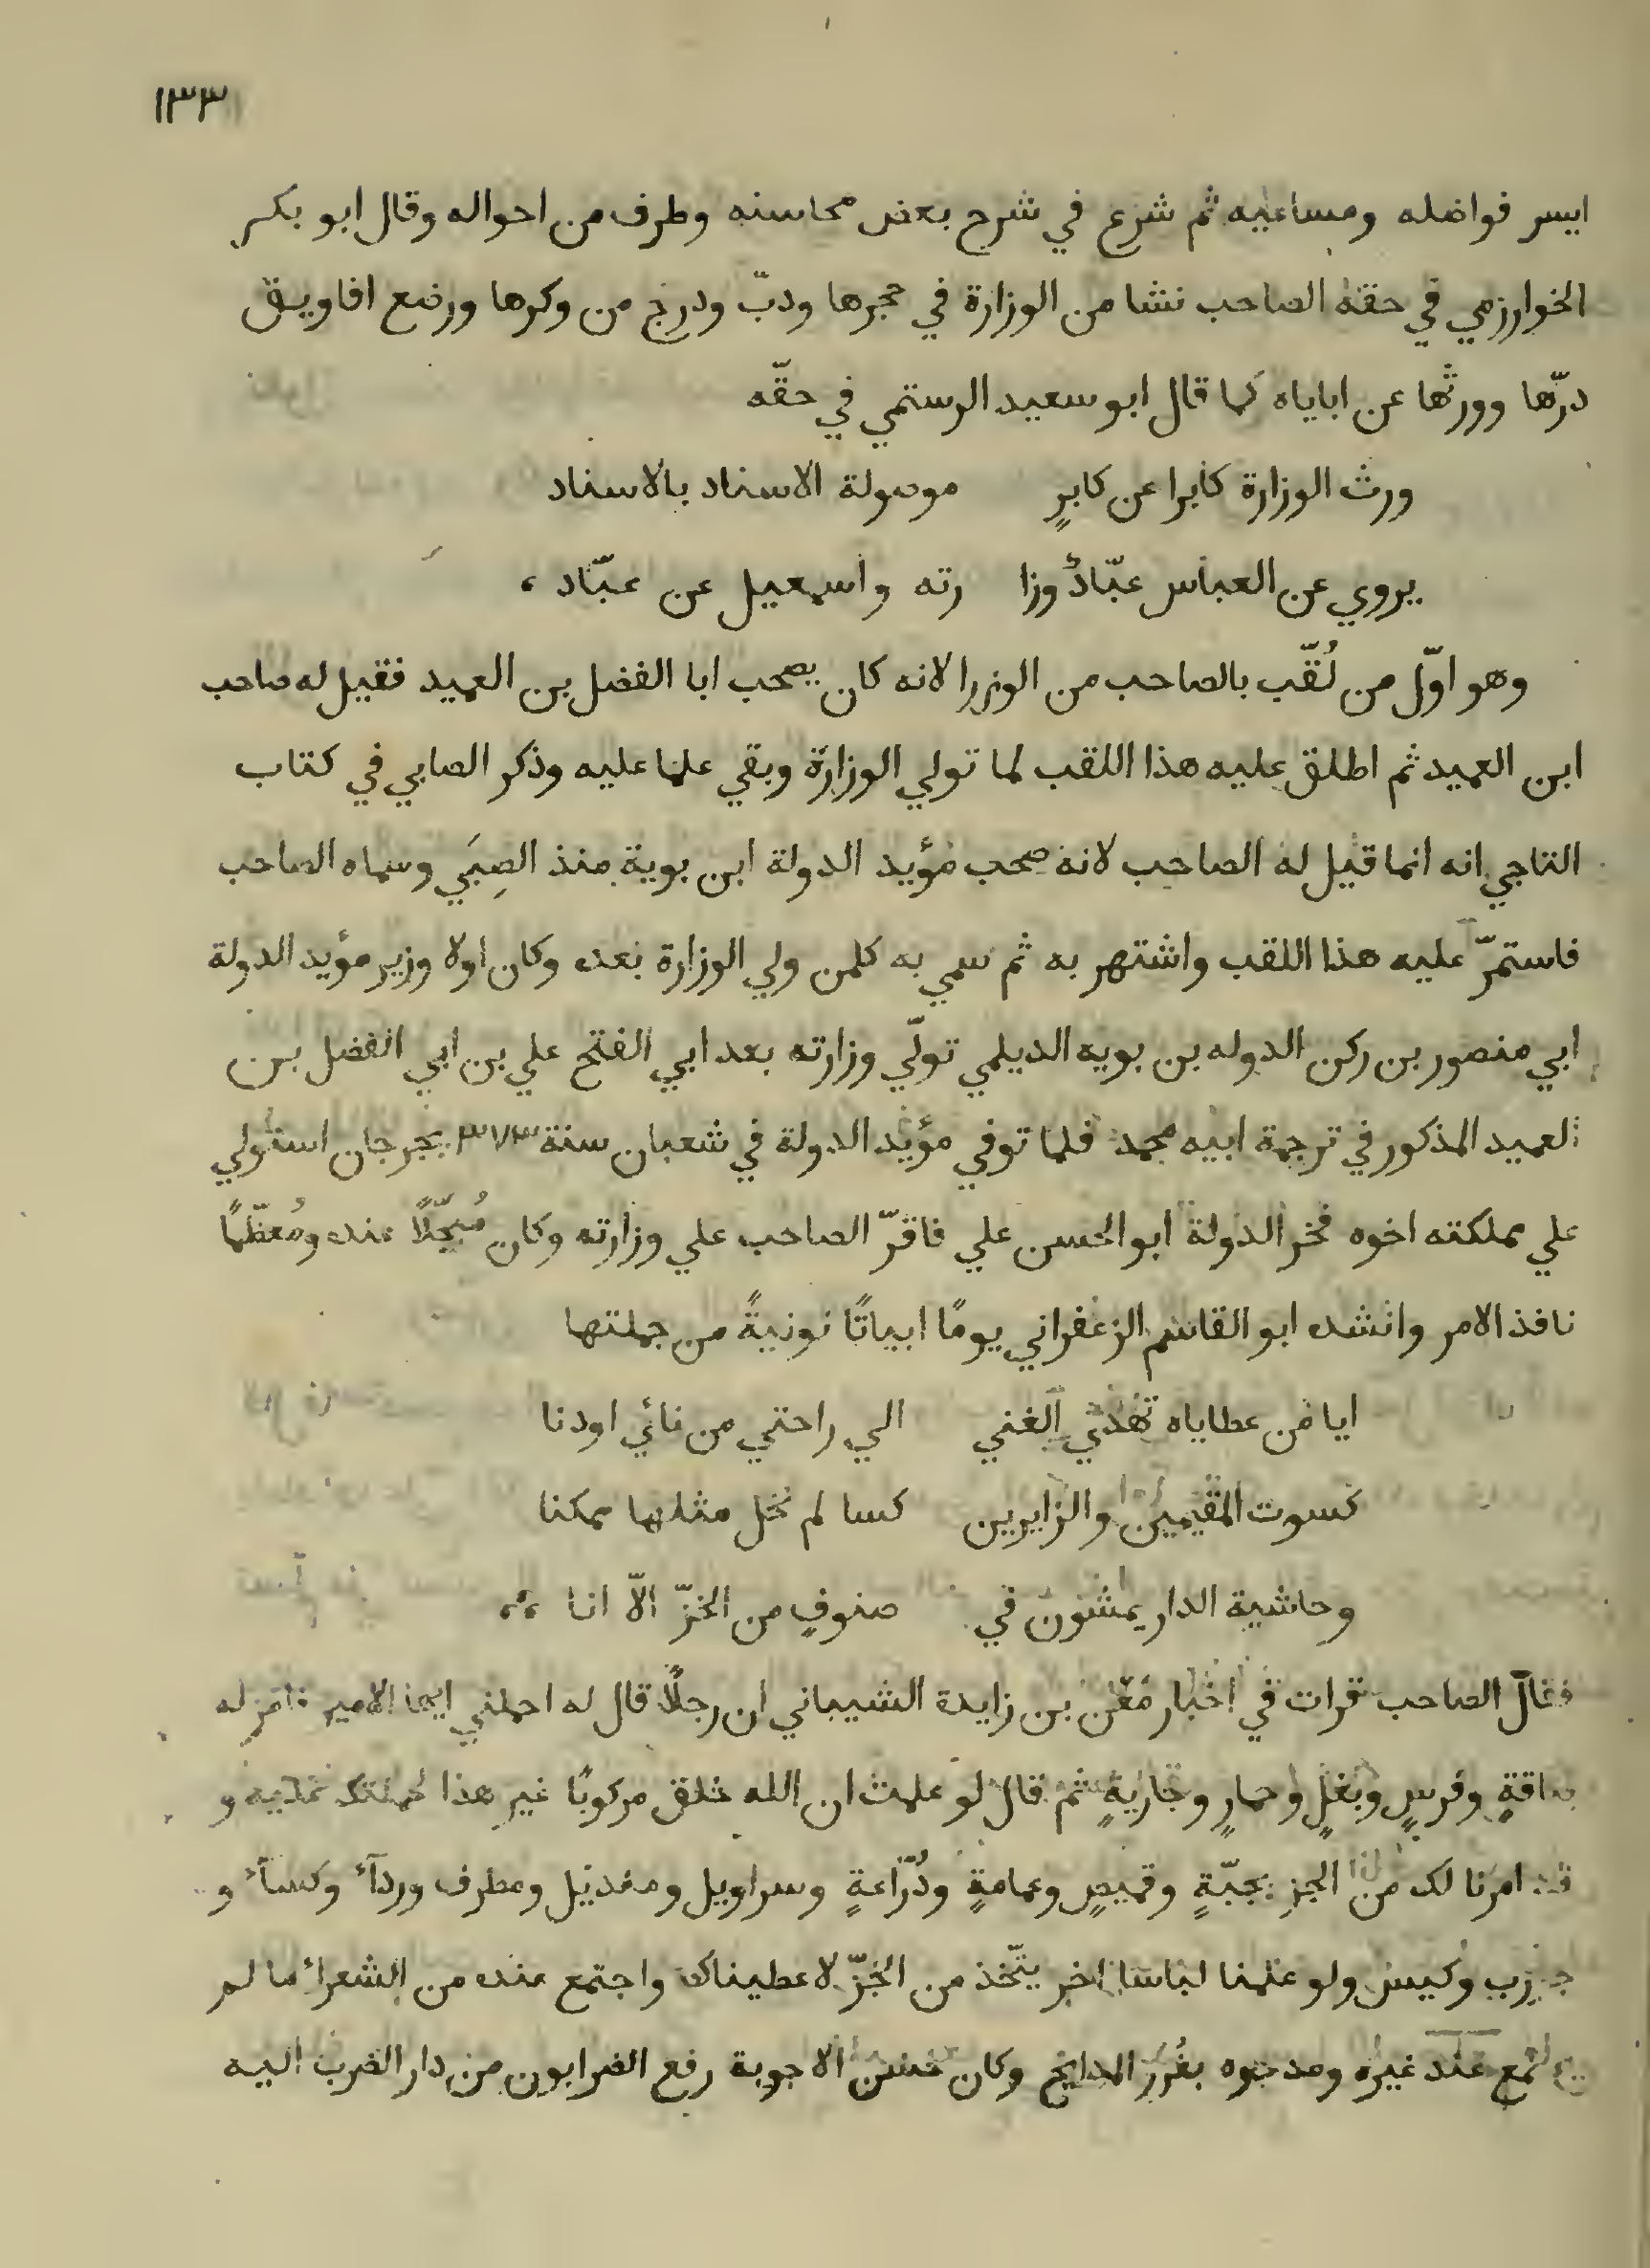 ١٣٣
ايسر فواضله ومساعيه ثم شرع في شرح بعض محاسنه وطرف من احواله وقال ابو بكر
الخوارزمي في حقه الصاحب نشا من الوزارة في حجرها ودبّ ودرج من وكرها ورضع افاويق
درّها وورثها عن اباياه كما قال ابو سعيد الرستمي في حقّه
ورث الوزارة كابرا عن كابرٍ موصولة الاسناد بالاسناد
يروي عن العباس عبّادُ وزا رته واسمعيل عن عبّاد ،
وهو اوّل من لُقّب بالصاحب من الوزرا لانه كان يصحب ابا الفضل بن العميد فقيل له صاحب
ابن العميد ثم اطلق عليه هذا اللقب لما تولي الوزارة وبقي علما عليه وذكر الصابي في كتاب
التاجي انه انما قيل له الصاحب لانه صحب مؤيد الدولة ابن بوية منذ الصِبَي وسماه الصاحب
فاستمرّ عليه هذا اللقب واشتهر به ثم سمي به كلمن ولي الوزارة بعده وكان اولا وزير مؤيد الدولة
ابي منصور بن ركن الدوله بن بويه الديلمي تولّي وزارته بعد ابي الفتح علي بن ابي الفضل بن
العميد المذكور في ترجمة ابيه محمد فلما توفي مؤيد الدولة في شعبان سنة ٣٧٣ بجرجان استولي
علي مملكته اخوه فخر الدولة ابو الحسن علي فاقرّ الصاحب علي وزارته وكان مُبجّلًا عنده ومُعظّمًا
نافذ الامر وانشده ابو القاسم الزعفراني يومًا ابياتًا نونيةً من جملتها
ايا من عطاياه تهدي الغني الي راحتي من نائي اودنا
كسوت المقيمين والزايرين كسا لم نخل مثلها ممكنا
وحاشية الدار يمشون في صنوفٍ من الخزّ الّا انا ،،
فقال الصاحب قرات في اخبار مَعْن بن زايدة الشيباني ان رجلًا قال له احملني ايها الامير فامر له
بناقةٍ وفرسٍ وبغلٍ وحمارٍ وجاريةٍ ثم قال لو علمت ان الله خلق مركوبًا غير هذا لحملتك عليه و
قد امرنا لك من الخز بجبّةٍ وقميصٍ وعمامةٍ ودُرّاعةٍ وسراويل ومنديل ومطرف وردآء وكسآء و
جورب وكيس ولو علمنا لباسا اخر يتّخذ من الخزّ لاعطيناك واجتمع عنده من الشعراء ما لم
يجتمع عند غيره ومدحوه بغُرَر المدايح وكان حسن الاجوبة رفع الضرابون من دار الضرب اليه